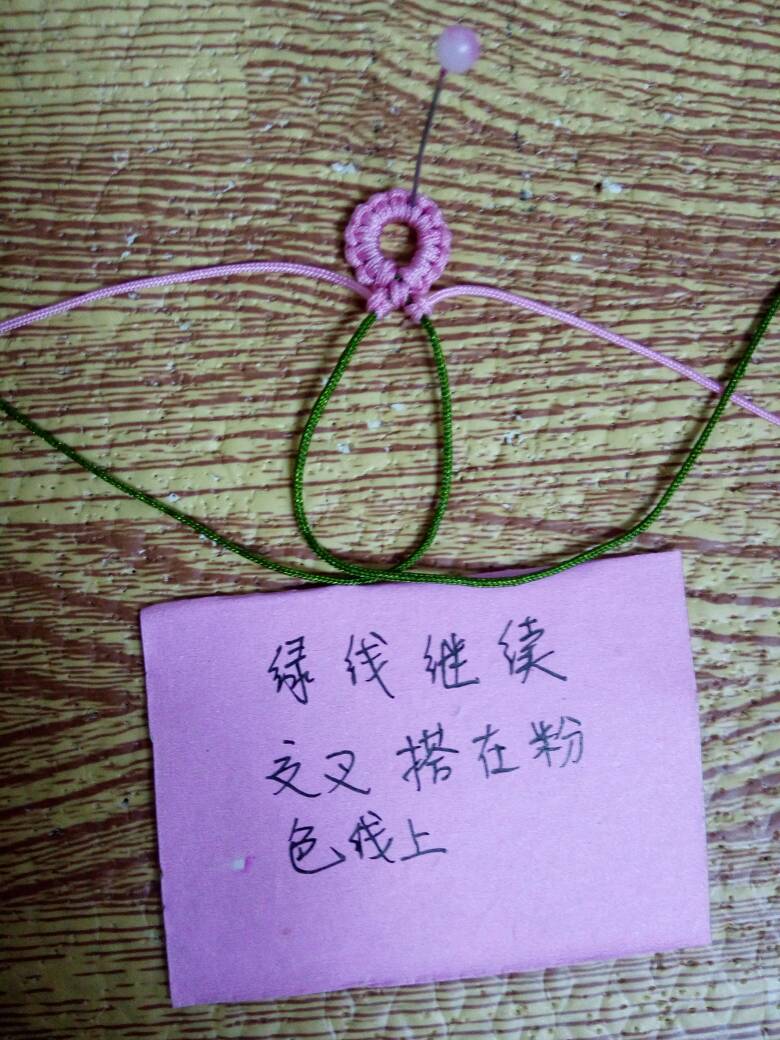 绿线继续
交叉搭在粉
色线上